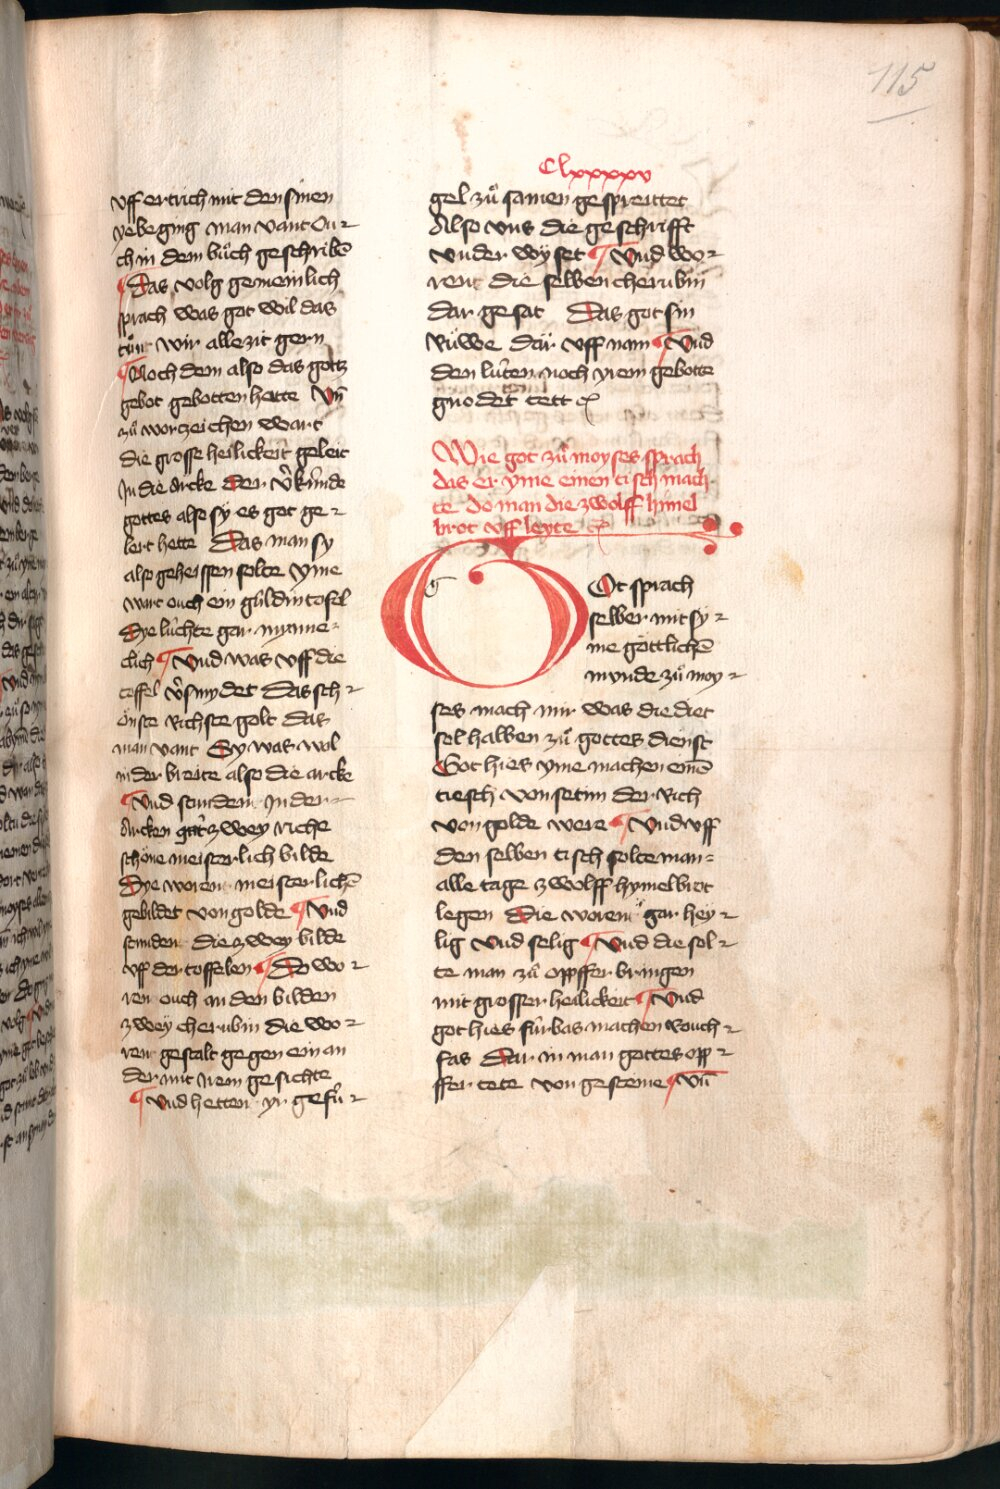 115
Clxxxxv
vff ertrich mit den sinen
ye beging man vant Ou⸗
ch in dem bůch geschribē
¶ Das volg gemeinlich
sprach was got wil das
tůnt wir alle zit gern
¶ Noch dem also das gottz
gebot gebotten hette Vn̄
zů worzeichen wart
die grosse heilickeit geleit
In die arcke der v̓kúnde
gottes alse sy es got ge⸗
lert hette Das man sy
also geheissen solte yme
wart ouch ein guldin tofel
Dye lúchte gar mynne⸗
clich ¶ Vnd was vff die
toffel v̓smydet Das sch⸗
önste richste golt das
man vant Sy was wol
in der breite also die arcke
¶ Vnd stunden In der
Arcken zwey riche
schöne meisterlich bilde
Dye worent meisterlichē
gebildet von golde ¶ Vnd
stunden die zwey bilde
vff der toffelen ¶ Do wo⸗
ren ouch an den bilden
zwey cherubin die wo⸗
rent gestalt gegen ein an
der mit irem gesichte
¶ Vnd hetten yr gefú⸗
gel zů samen gespreittet
Also vns die geschrifft
vnder wyset ¶ Vnd wo⸗
rent die selben cherubin
dar gesat Das got sin
rúwe dar vff nam ¶ Vnd
den lúten noch yrem gebotte
gnode tett
Wie got zů moyses sprach
das er yme einen tisch mach
te do man die zwolff himel
brot vff leyte
g
GOt sprach
selber mit sy⸗
me göttlichē
mvnde zů moy⸗
ses mach mir was die diet
sol halben zů gottes dienst
Got hies yme machen einē
tiesch von setim der rich
von golde were ¶ Vnd vff
den selben tisch solte man⸗
alle tage zwolff hymelbrot
legen Die worent gar hey⸗
lig vnd selig ¶ Vnd die sol⸗
te man zů opffer bringen
mit grosser heilickeit ¶ Vnd
got hies fúrbas machen rouch⸗
fas Dar in man gottes opp⸗
ffer tete von gesteine ¶ Vn̄